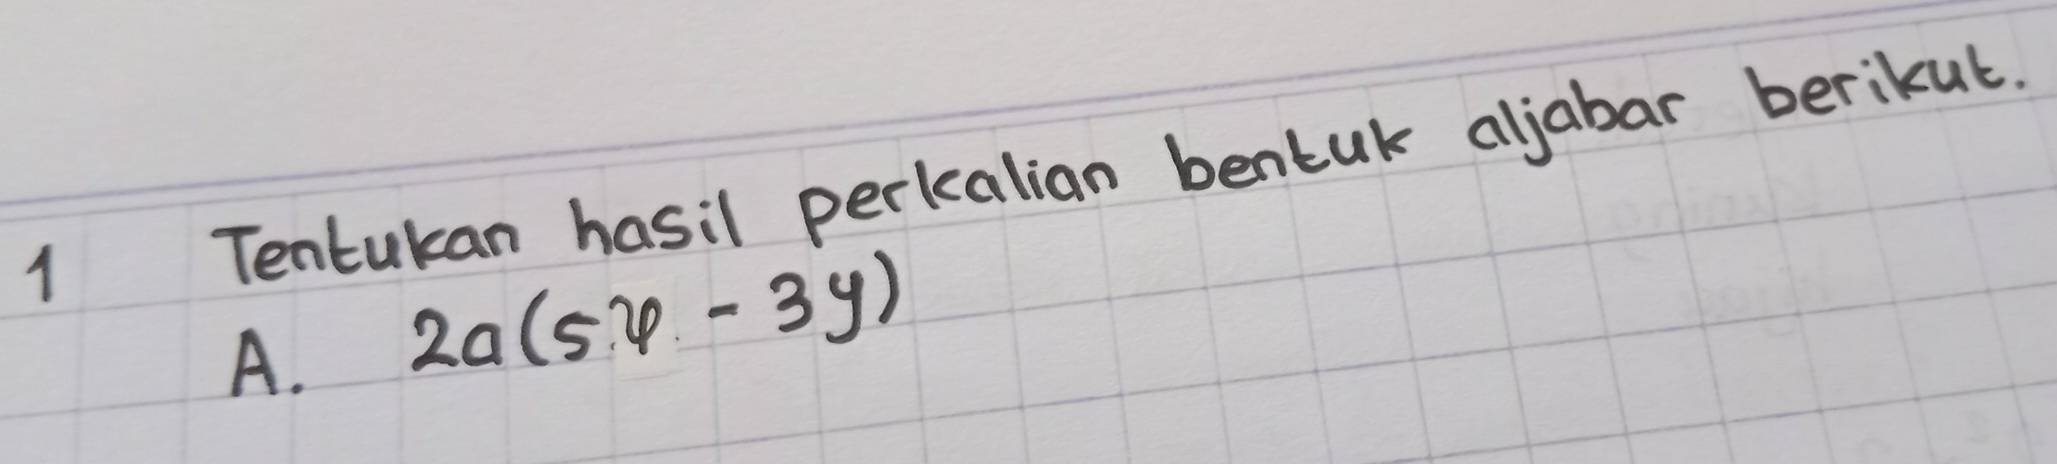 1 Tentukan hasil perkalian bentuk aljabar berikut.
A. 2a(5φ - 3y)